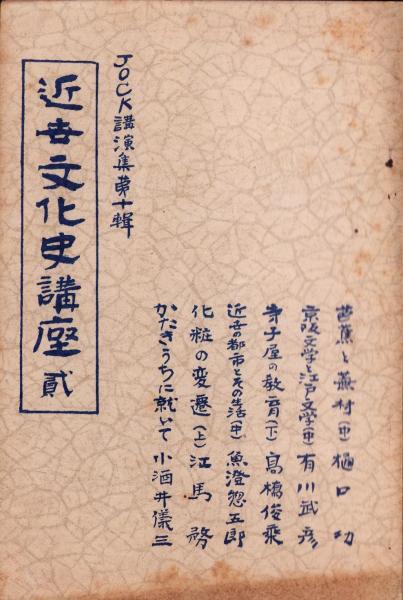 芭蕉と蕪村(中) 樋口功
京阪文学と江戸文学(中) 有川武彦
寺子屋の教育(下) 高橋俊乗
近世の都市とその生活(中) 魚澄惣五郎
化粧の変遷(上) 江馬務
かたきうちに就いて 小酒井儀三
JOCK講演集第十輯
近世文化史講座 貳